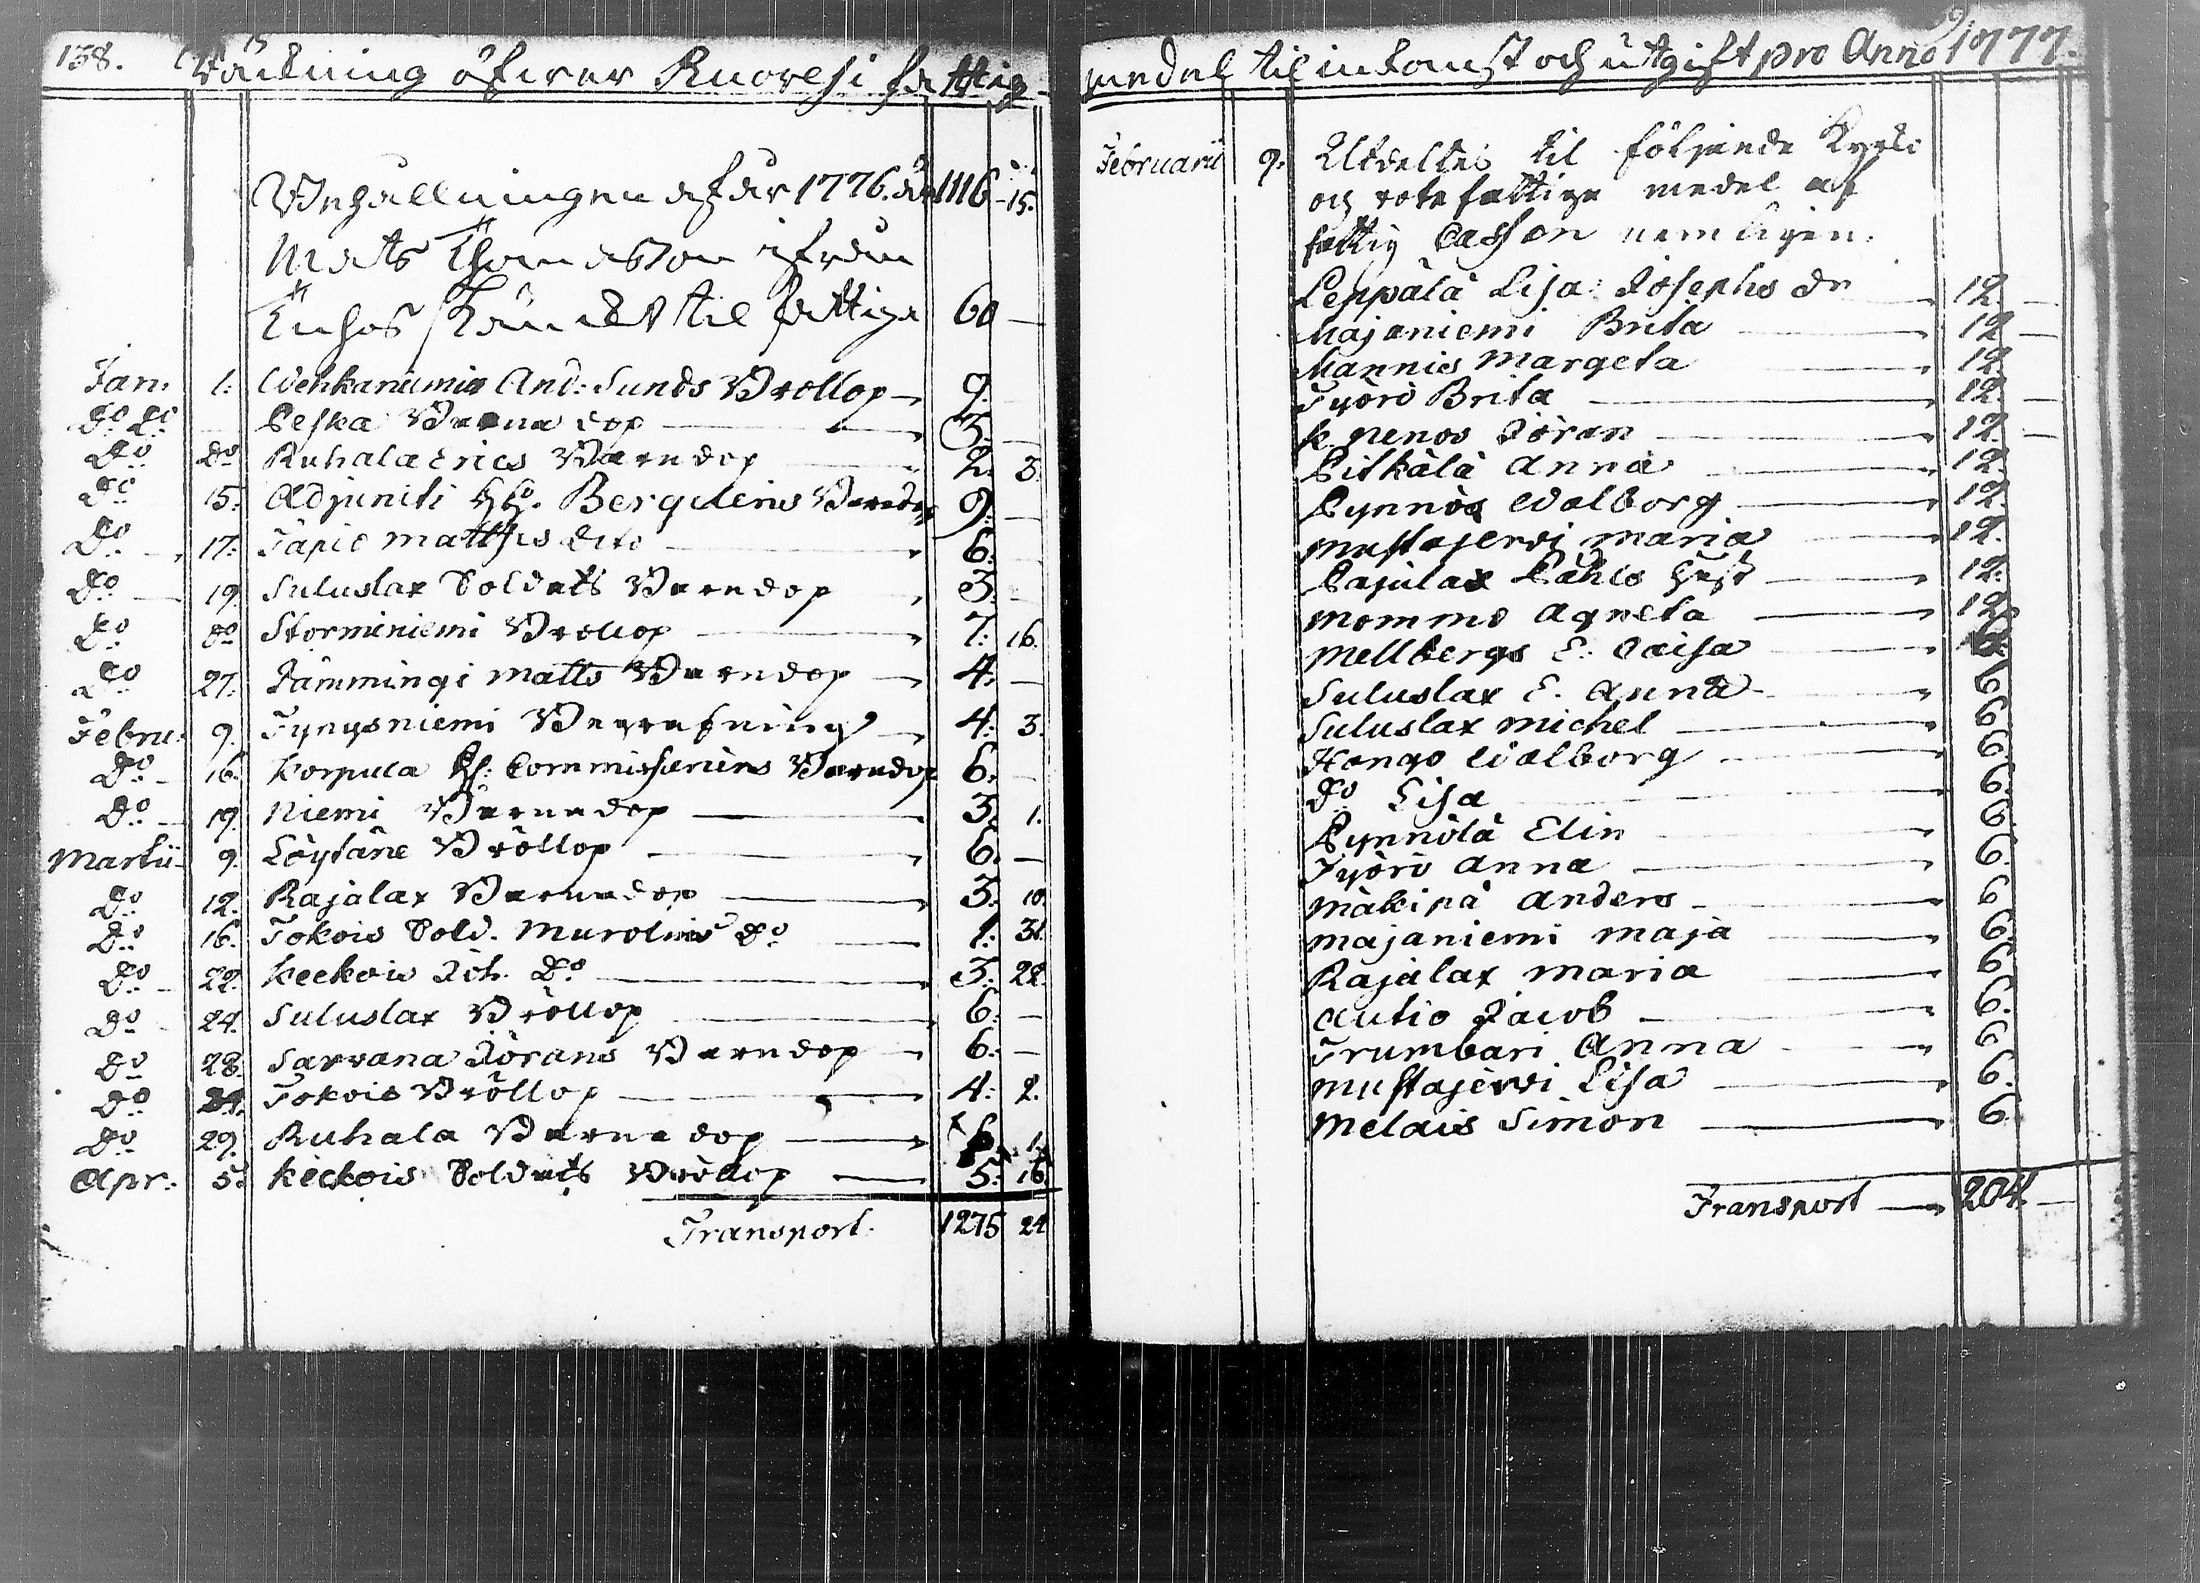 138.
Räkning öfwer Kuoresi fattig
Behållningen af år 1776. är 1116 15.
Mats Thomasson ifrån
Kuhos skänckt til fattiga 60 —
Jan: 1. Wehkaniemis And: Sunds Bröllop 9.
Do Do Peska Barna dop 3. —
Do Do Ruhala Erics Barndop 2. 3.
Do 15. Adjuncti H. Bergelins Barndop 9. —
Do 17. Tapio Matthis dito 6.
Do 19. Suluslax Soldats Barndop 3. —
Do Do Storminiemi Bröllop 7. 16.
Do 27. Jämmingi Matts Barndop 4. —
Febru: 9. Tynysniemi Begrafning 4. 3.
Do 16. Korpula H: Commissariens Barndop 6. —
Do 19. Niemi Barnadop 3. 1.
Martii 9. Löytäne Bröllop 6. —
Do 12. Rajalax Barnadop 3. 10.
Do 16. Tokois Sold. Murolins Do 1. 31.
Do 22. Keckois Joh. Do 3. 22.
Do 24. Suluslax Bröllop 6. —
Do 28. Sarvana Jörans Barndop 6. —
Do Tokois Bröllop 4. 2.
Do 29. Ruhala Barnadop
Apr: 5. Keckois Soldats Bröllop 5. 16
Transport. 1275 24
medel til inkomst och utgift pro Anno 1777.
Februarii 9. Utdeltes til följande Kyrko
och rote fattige medel af
fattig Cassan nemligen.
Leppälä Lisa Josephs dr 12. —
Majaniemi Brita 12 —
Mannis Margeta 12
Työrö Brita 12. —
K. nenos Jöran 12. —
Pitkälä Anna 12.
Pynnös Walborg 12.
Mustajerwi Maria 12.
Pajulax Påhls Hust 12.
Mommo Agneta 12.
Mellbergs E. Caisa
Suluslax E. Anna 6
Suluslax Michel 6.
Hongo Walborg 6.
Do Lisa 6.
Pynnölä Elin 6.
Työrö Anna 6.
Mäkipä Anders 6
Majaniemi Maja 6.
Rajalax Maria 6.
Autio Jacob 6.
Trumbari Anna 6
Mustajerwi Lisa 6.
Melais Simon 6.
Transport 204. —